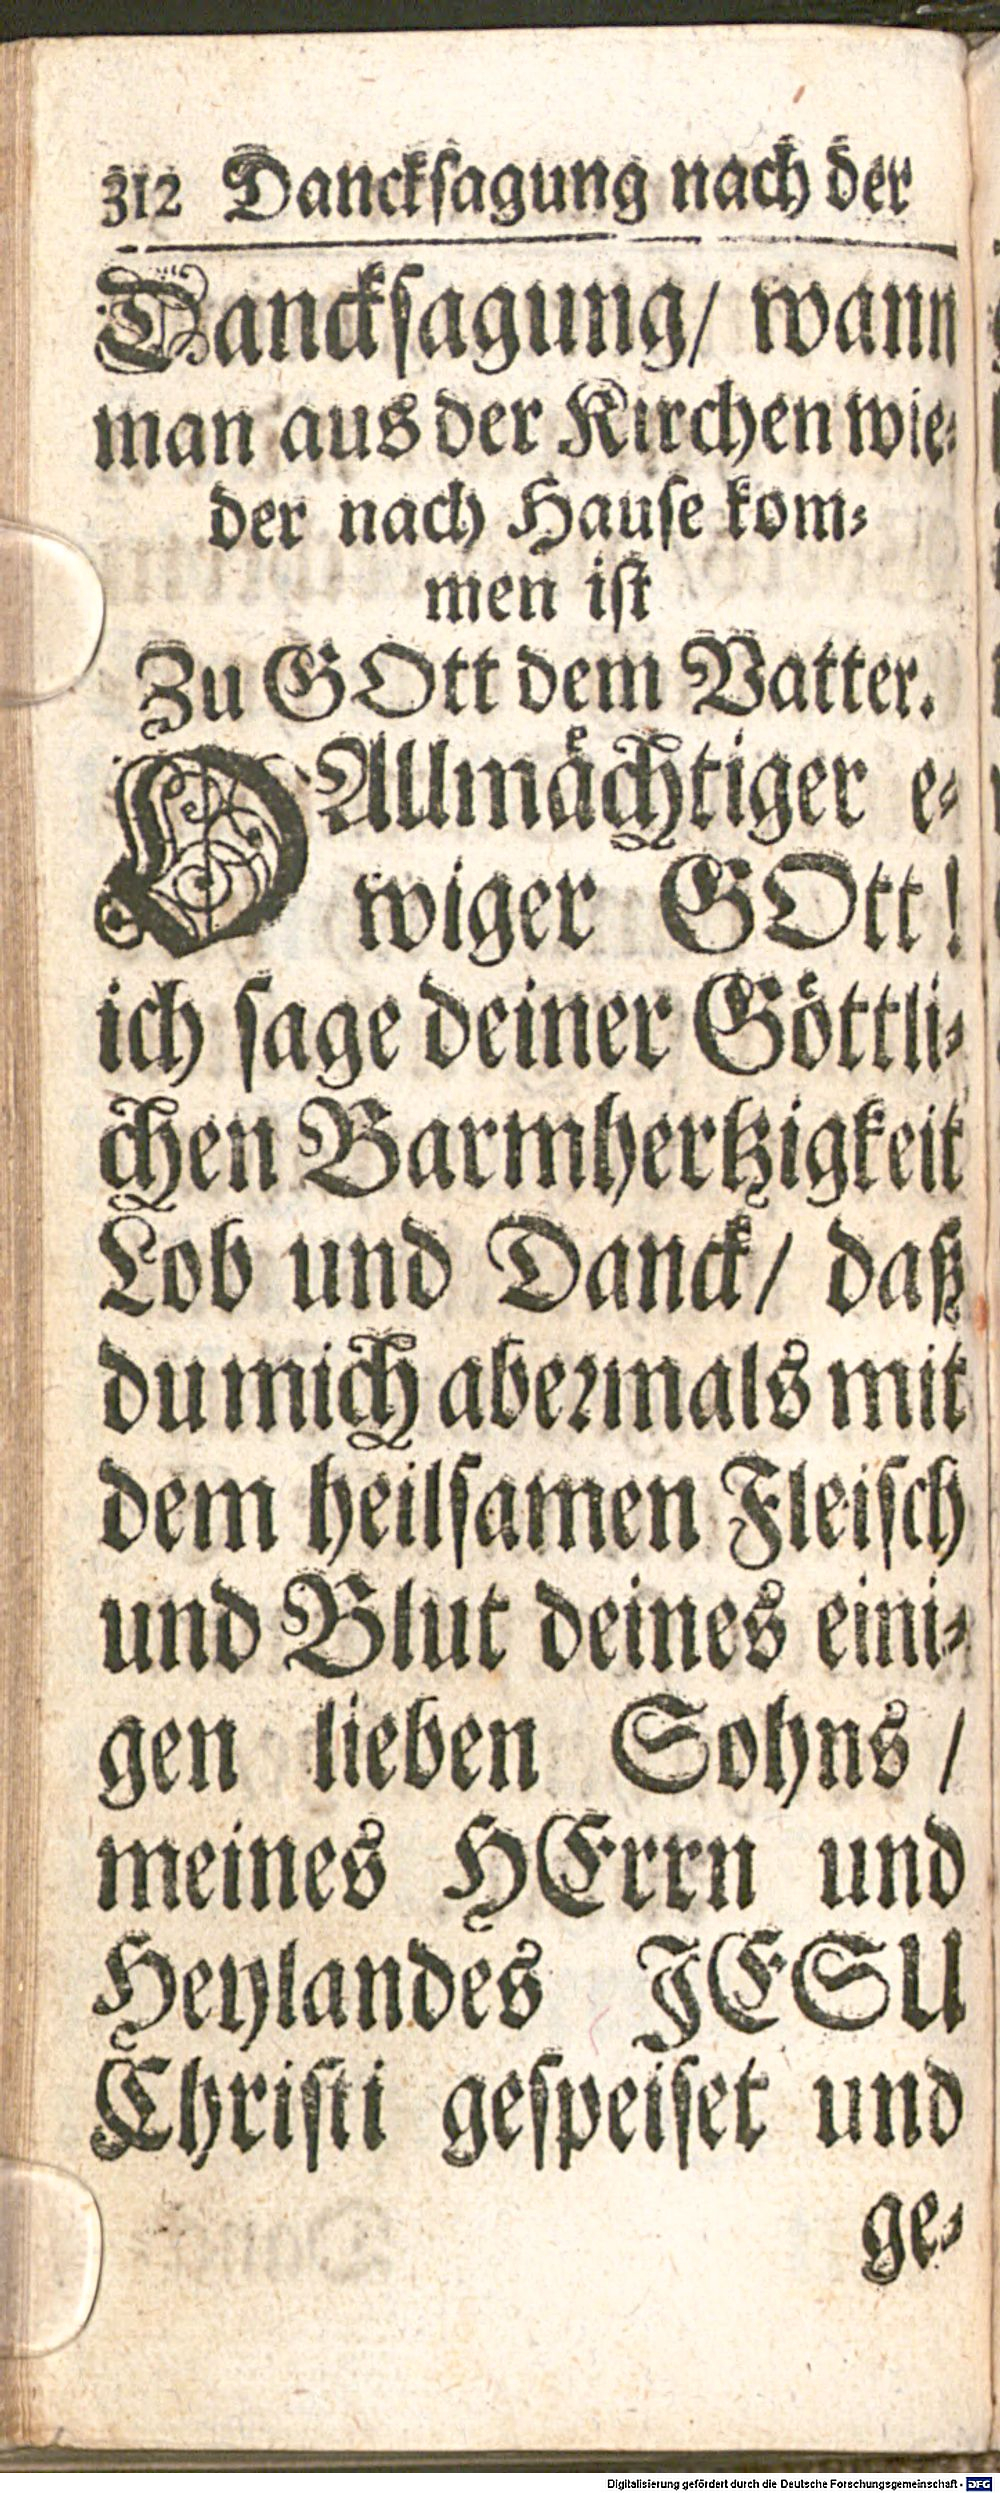 312 Danckſagung nach der
Danckſagung/ wann
man aus der Kirchen wie⸗
der nach Hauſe kom⸗
men iſt
Zu GOtt dem Vatter.
O Allmaͤchtiger e⸗
wiger GOtt!
ich ſage deiner Goͤttli⸗
chen Barmhertzigkeit
Lob und Danck/ daß
du mich abermals mit
dem heilſamen Fleiſch
und Blut deines eini⸗
gen lieben Sohns/
meines HErrn und
Heylandes JESU
Chriſti geſpeiſet und
ge⸗
Digitalisierung gefördert durch die Deutsche Forschungsgemeinschaft - DFG